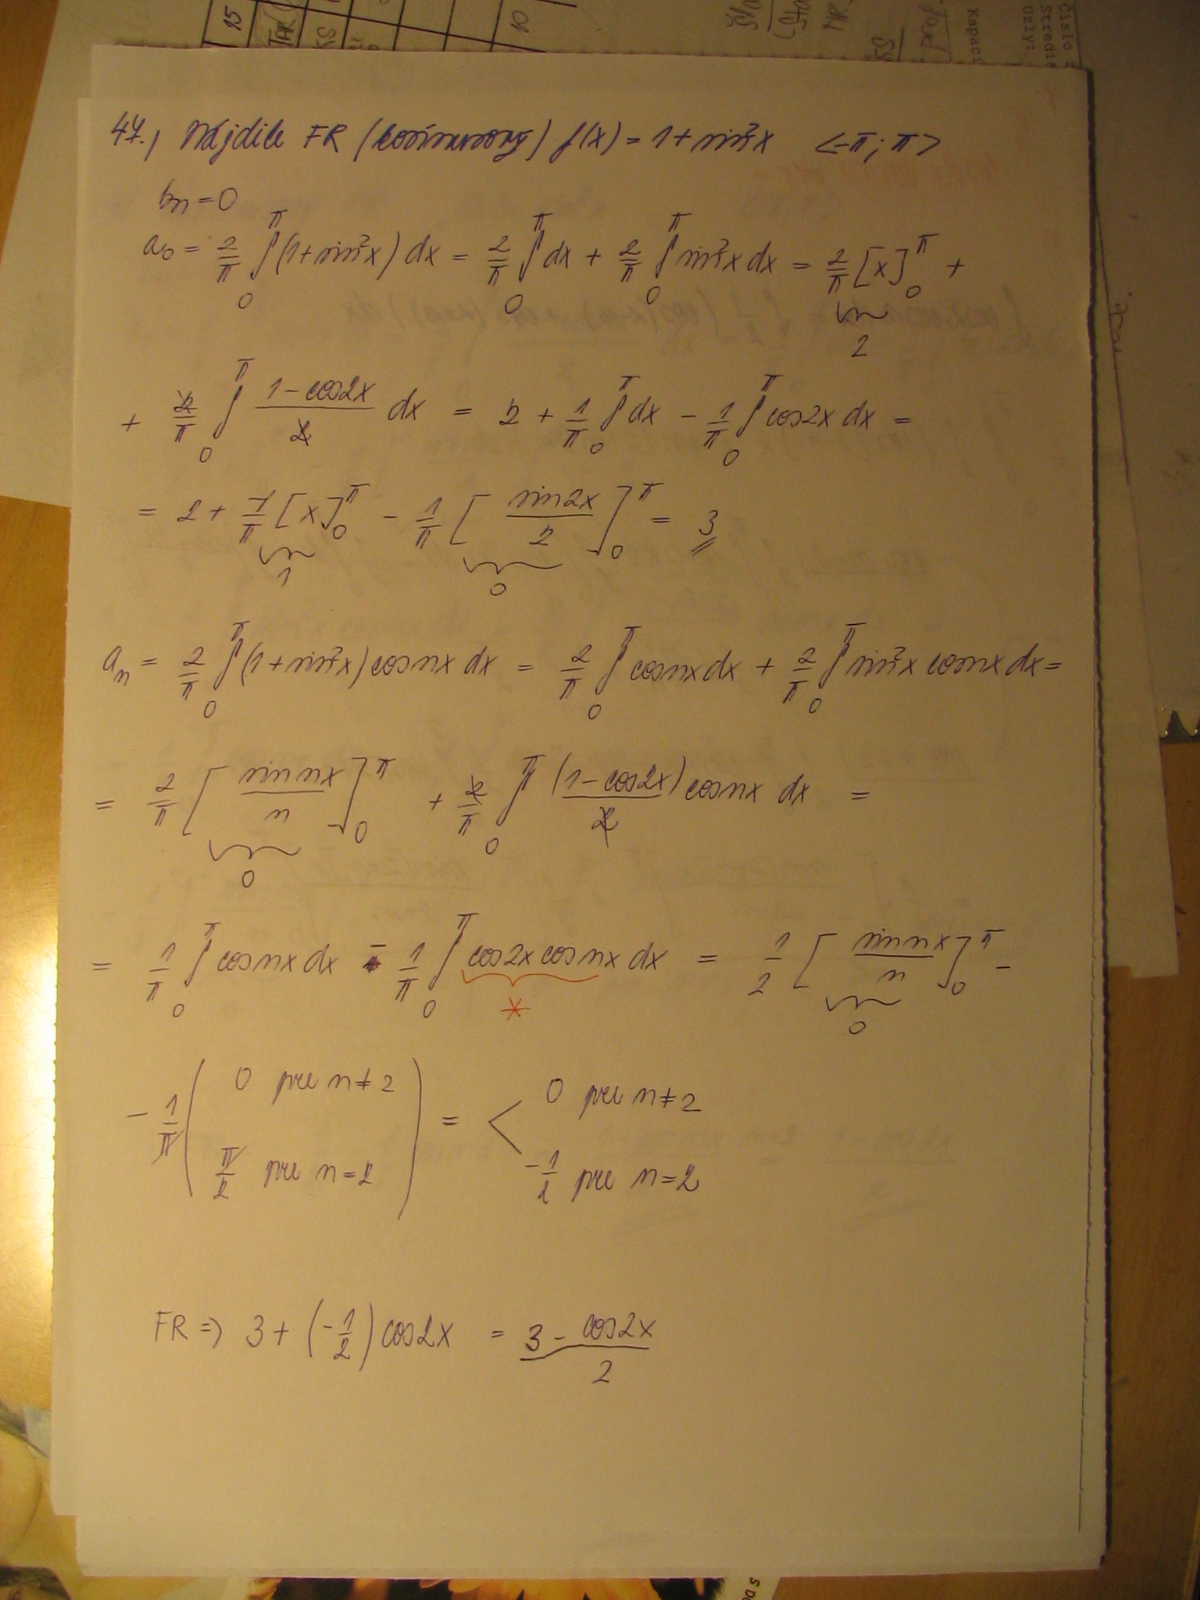 15
10
Číslo
Stredis
Úzly:
Kapac
47., Nájdite FR (kosínusový) f(x) = 1 + sin²x <-π; π>
bₙ = 0
a₀ = 2/π ∫₀^π (1 + sin²x) dx = 2/π ∫₀^π dx + 2/π ∫₀^π sin²x dx = 2/π [x]₀^π +
2
+ 2/π ∫₀^π (1 - cos2x)/2 dx = 2 + 1/π ∫₀^π dx - 1/π ∫₀^π cos2x dx =
= 2 + 1/π [x]₀^π - 1/π [sin2x/2]₀^π = 3
1 0
aₙ = 2/π ∫₀^π (1 + sin²x) cosnx dx = 2/π ∫₀^π cosnx dx + 2/π ∫₀^π sin²x cosnx dx =
= 2/π [sin nx/n]₀^π + 2/π ∫₀^π (1 - cos2x)/2 cosnx dx =
0
= 1/π ∫₀^π cosnx dx - 1/π ∫₀^π cos2x cosnx dx = 1/2 [sin nx/n]₀^π -
* 0
- 1/π ( 0 pre n≠2 ) = < 0 pre n≠2
π/2 pre n=2 -1/2 pre n=2
FR => 3 + (-1/2) cos2x = 3 - cos2x/2